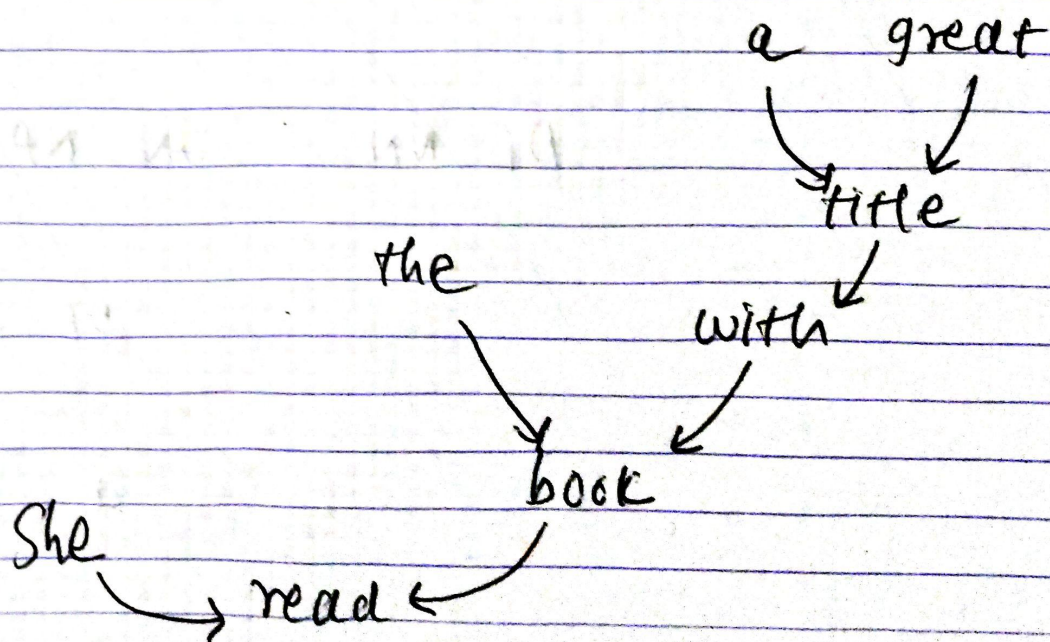 a great
title
the
with
book
She
read